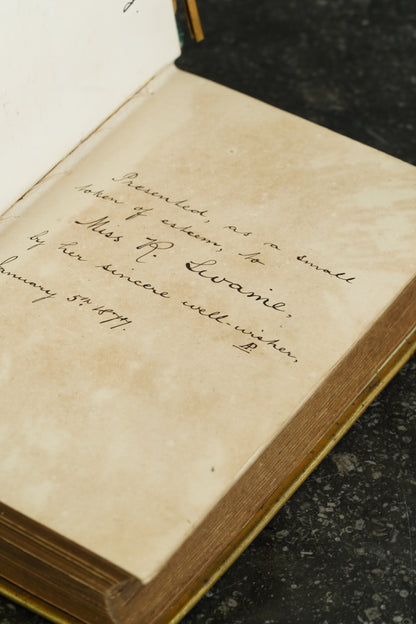 Presented, as a small
token of esteem, to
Miss R. Swaine,
by her sincere well-wisher,
January 5th 1877.